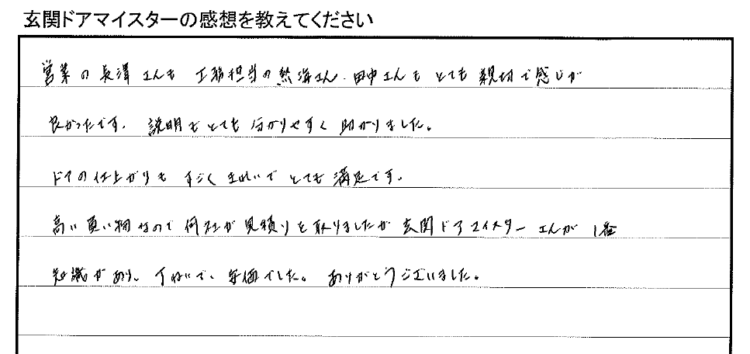 玄関ドアマイスターの感想を教えてください
営業の長澤さんも 工務担当の熱海さん、田中さんも とても 親切で感じが
良かったです。 説明もとても 分かりやすく 助かりました。
ドアの仕上がりも すごく きれいで とても 満足です。
高い買い物なので 何社か見積りを取りましたが 玄関ドアマイスター さんが 1番
知識があり、丁ねいで、安価でした。 ありがとうございました。